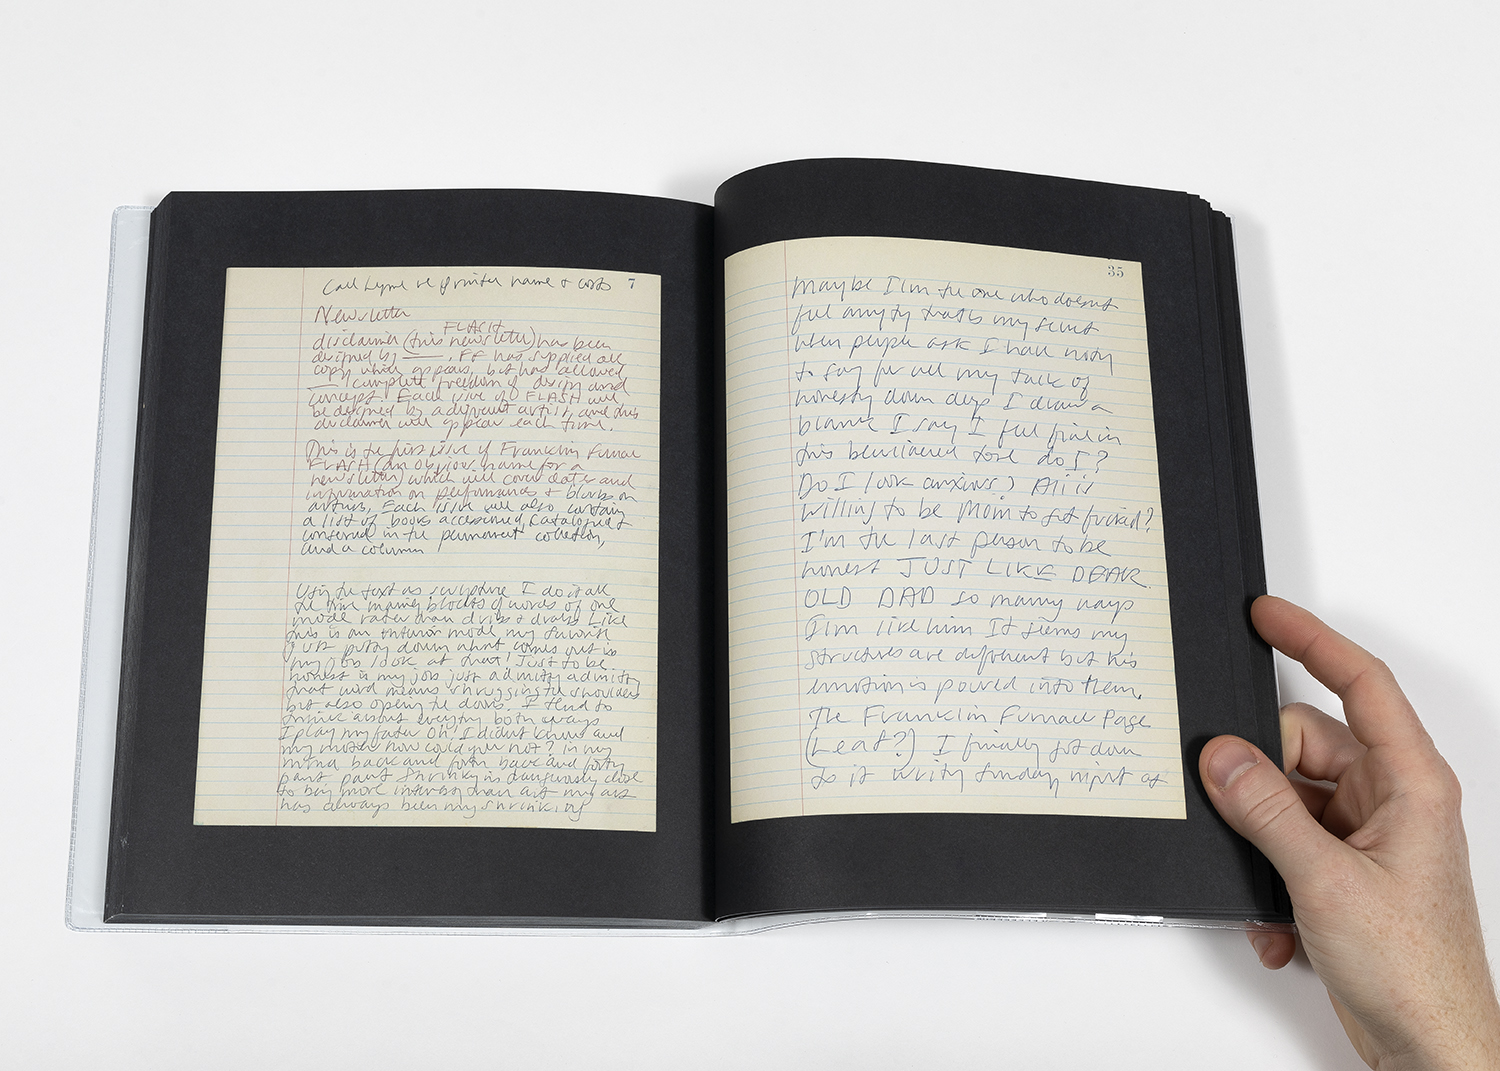 Call Lynne re printer name + costs 7
Newsletter
FLASH
disclaimer (this newsletter) has been
designed by —. FF has supplied all
copy which appears, but has allowed
— complete freedom of design and
concept. Each issue of FLASH will
be designed by a different artist, and this
disclaimer will appear each time.
This is the first issue of Franklin Furnace
FLASH (an obvious name for a
newsletter) which will cover dates and
information on performances + blurbs on
artists. Each issue will also contain
a list of books accessioned, cataloged +
conserved in the permanent collection,
and a column
Using the text as sculpture I do it all
the time inquiring blocks of words of one
mode rather than dribs + drabs Like
this is an interior mode my favorite
just putting down what comes out is
my job look at that! Just to be
honest is my job just admitting admitting
that word means shrugging the shoulders
but also opening the doors. I tend to
think about everything both ways
I play my father Oh, I didn't know and
my mother how could you not? in my
mind back and forth back and forth
pant pant Shrinking is dangerously close
to being more interesting than art my art
has always been my shrinking
35
Maybe I'm the one who doesn't
feel anything that is my secret
when people ask I have nothing
to say for all my talk of
honesty down deep I draw a
blank I say I feel fine in
this bewildered tone do I?
Do I look anxious? Ali is
willing to be Mom to get fucked?
I'm the last person to be
honest JUST LIKE DEAR
OLD DAD so many ways
I'm like him It seems my
structures are different but his
emotion is poured into them.
The Franklin Furnace Page
(Leaf?) I finally got down
to it writing Sunday night at